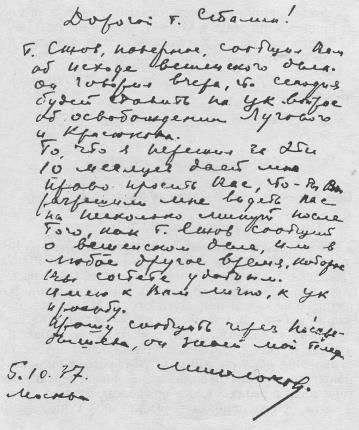 Дорогой т. Сталин!
Т. Ежов, наверное, сообщил Вам
об исходе вешенского дела.
Он говорил вчера, что сегодня
будет ставить на ЦК вопрос
об освобождении Лугового
и Красюкова.
То, что я пережил за эти
10 месяцев дает мне
право просить Вас, что-бы Вы
разрешили мне видеть Вас
на несколько минут после
того, как т. Ежов сообщит
о вешенском деле, или в
любое другое время, которое
Вы сочтете удобным.
Имею к Вам лично, к ЦК
просьбу.
Прошу сообщить через Поскре-
бышева, он знает мой телеф.
5.10.37.
Москва
М. Шолохов.